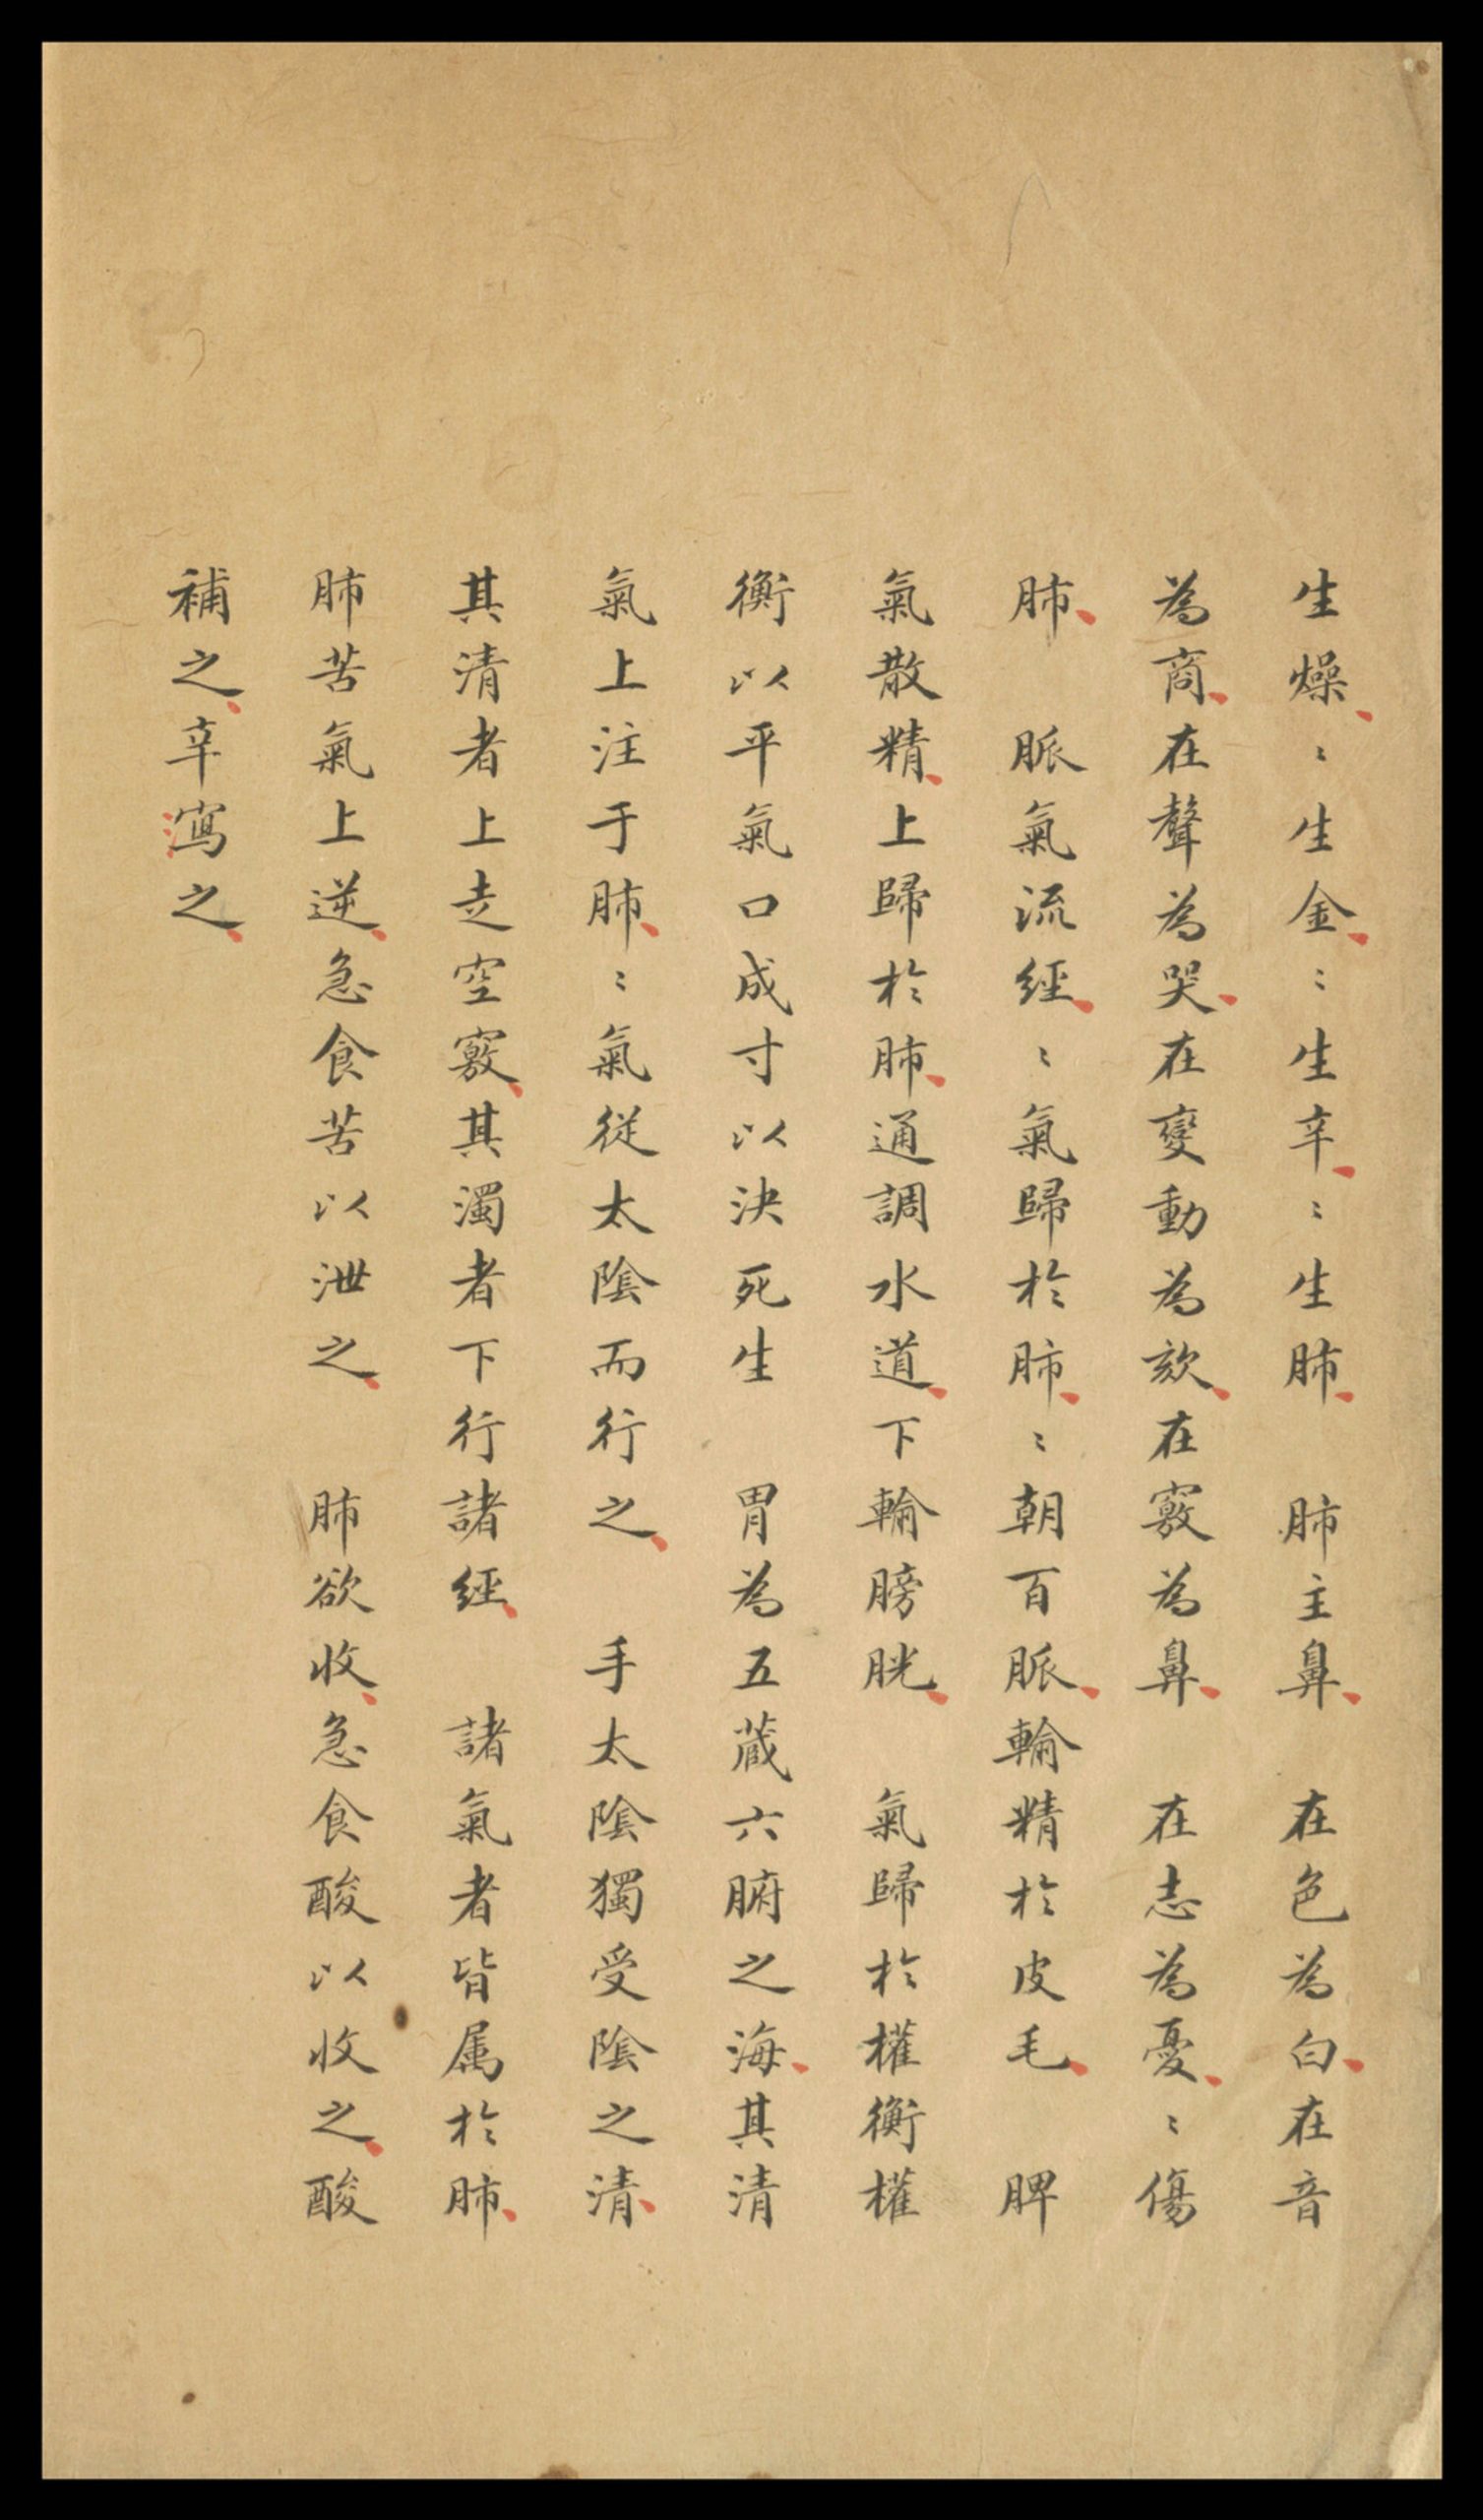 生燥、〻生金、〻生辛、〻生肺、　肺主鼻、　在色為白、在音
為商、在聲為哭、在變動為欬、在竅為鼻、　在志為憂、〻傷
肺、　脈氣流經、〻氣歸於肺、〻朝百脈、輸精於皮毛、　脾
氣散精、上歸於肺、通調水道、下輸膀胱、　氣歸於權衡權
衡以平氣口成寸以決死生　胃為五蔵六腑之海、其清
氣上注于肺、〻氣從太陰而行之、　手太陰獨受陰之清、
其清者上走空竅、其濁者下行諸經、　諸氣者皆属於肺、
肺苦氣上逆、急食苦以泄之、　肺欲收、急食酸以收之、酸
補之、辛瀉之、